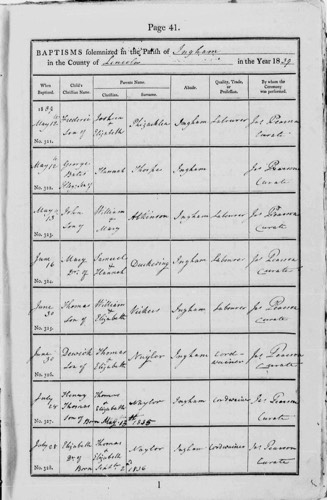 Page 41.
BAPTISMS solemnized in the Parish of Ingham
in the County of Lincoln in the Year 1839
When Baptized. Child's Christian Name. Parents Name. Abode. Quality, Trade, or Profession. By whom the Ceremony was performed.
Christian. Surname.
1839
May 12 Frederic Son of Joshua & Elizabeth Ingham Labourer Jos Pearson Curate
No. 321.
May 12 George Hannah Thorpe Ingham Jos Pearson Curate
No. 322.
May 13 John Son of William & Mary Atkinson Ingham Labourer Jos Pearson Curate
No. 323.
June 16 Mary Dr. of Samuel & Hannah Ingham Labourer Jos Pearson Curate
No. 324.
June 30 Thomas Son of William & Elizabeth Vickers Ingham Labourer Jos Pearson Curate
No. 325.
June 30 Son of Thomas & Elizabeth Naylor Ingham Cordwainer Jos Pearson Curate
No. 326.
July 28 Henry Thomas Son of Thomas & Elizabeth Naylor Ingham Cordwainer Jos Pearson Curate
Born May 12th 1835
No. 327.
July 28 Elizabeth Dr of Thomas & Elizabeth Naylor Ingham Cordwainer Jos Pearson Curate
Born 1836
No. 328.
1